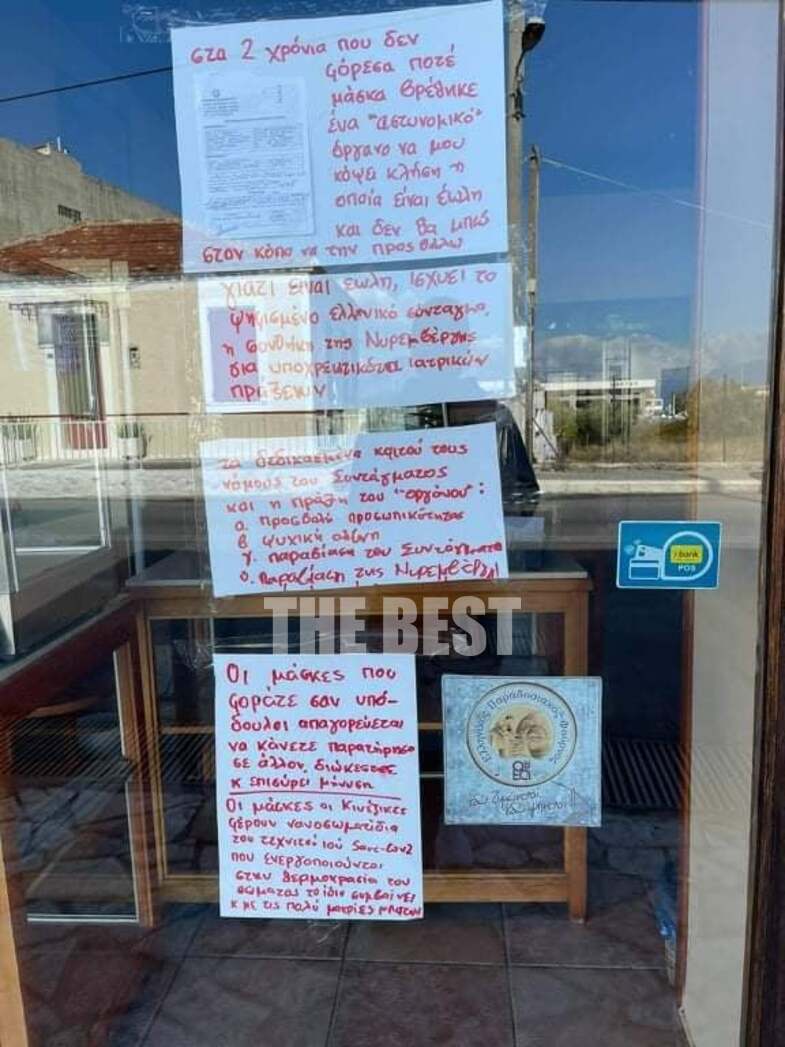 στα 2 χρόνια που δεν
φόρεσα ποτέ
μάσκα βρέθηκε
ένα "αστυνομικό"
όργανο να μου
κόψει κλήση η
οποία είναι έωλη
και δεν θα μπω
στον κόπο να την προσβάλω
γιατί είναι έωλη, ισχύει το
ψηφισμένο ελληνικό σύνταγμα,
η συνθήκη της Νυρεμβέργης
για υποχρεωτικότητα ιατρικών
πράξεων
τα δεδικασμένα και τους
νόμους του Συντάγματος
και η πράξη του "οργάνου":
α. προσβολή προσωπικότητας
β ψυχική οδύνη
γ. παραβίαση του Συντάγματος
δ. παραβίαση της Νυρεμβέργης
i bank
POS
THE BEST
Οι μάσκες που
φοράτε σαν υπό-
δουλοι απαγορεύεται
να κάνετε παρατήρηση
σε άλλον, διώκεστε
κ επισύρει μήνυση
Οι μάσκες οι Κινέζικες
φέρουν νανοσωματίδια
του τεχνιτού ιού Sars-Cov2
που ενεργοποιούνται
στην θερμοκρασία του
σώματος το ίδιο συμβαίνει
κ με τις πολύ
Ελληνικός Παραδοσιακός Φούρνος